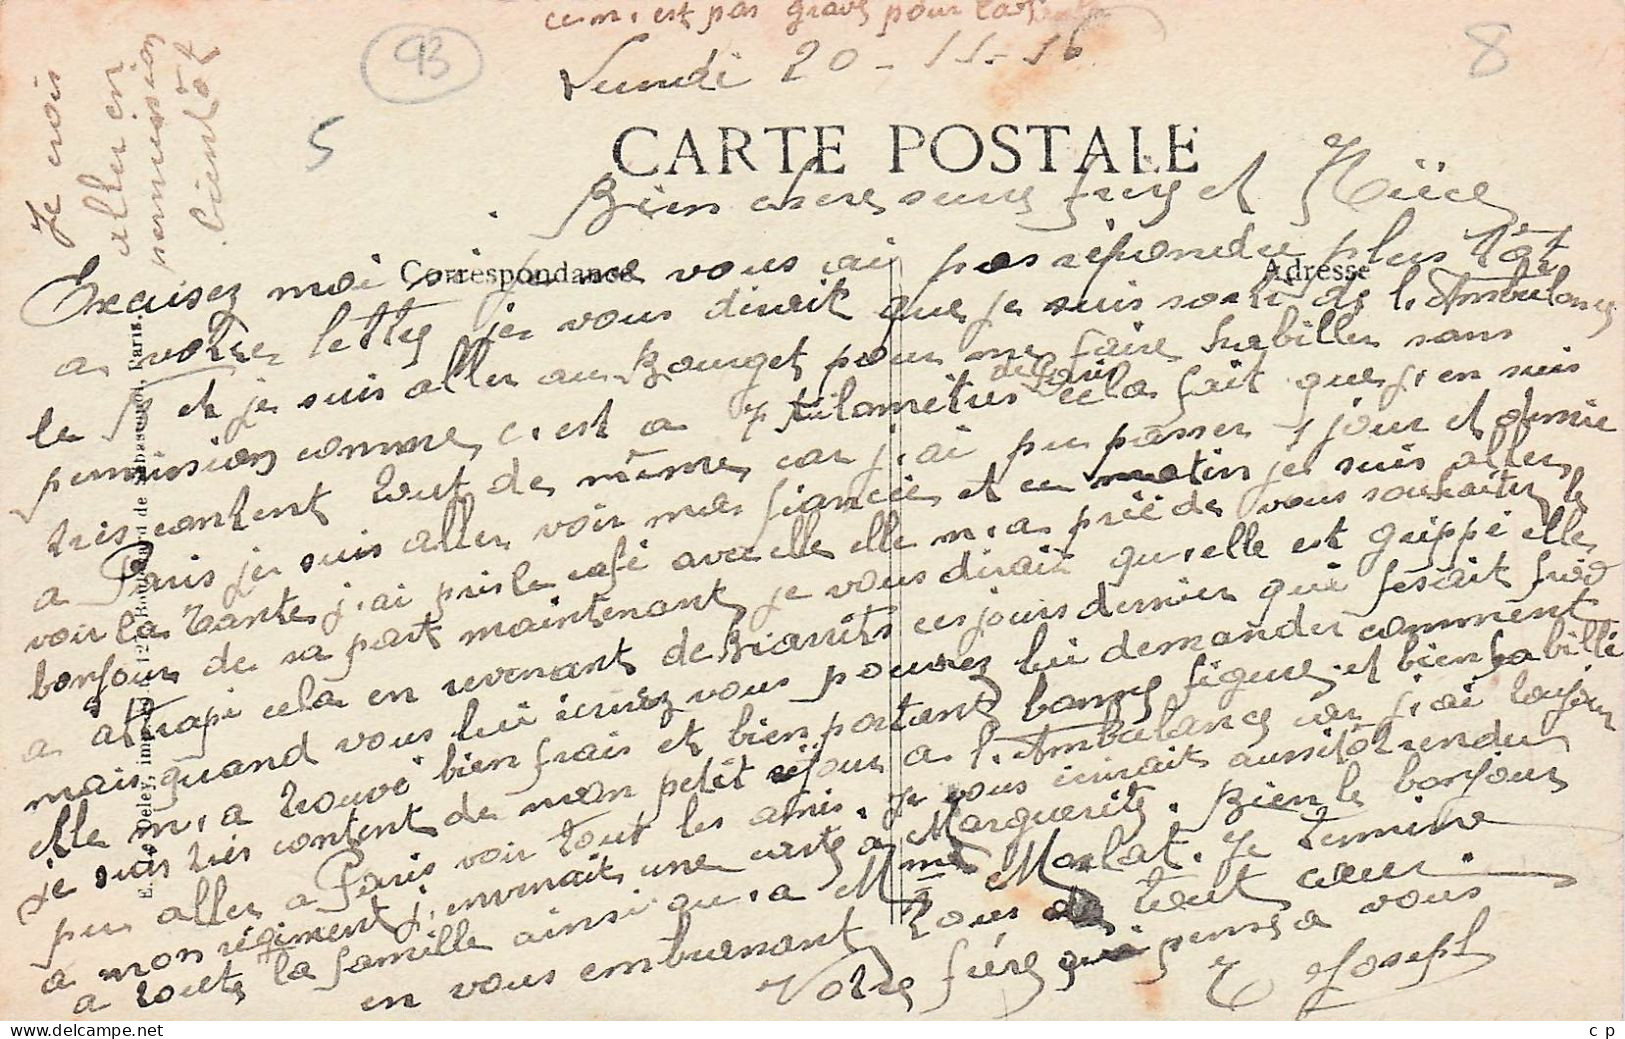 ce n'est pas grave pour la
Lundi 20-11-16
93
8
5
Je crois
aller en
permission
bientôt
CARTE POSTALE
Correspondance
Adresse
Bien chere seur frere et Nièce
Excusez moi si je ne vous ai pas répondu plus tôt
a votre lettre je vous dirait que je suis sorti de l'Ambulance
le et je suis aller au Bourget pour me faire habiller sans
permission comme c'est a 7 kilometres de Paris cela fait que j'en suis
très content tout de même car j'ai pu passer 1 jour et demie
a Paris je suis aller voir ma fiancée et ce matin je suis aller
voir la Tante j'ai pris le café avec elle elle m'a priée de vous souhaiter le
bonjour de sa part maintenant je vous dirait qu'elle est grippé elle
a attrapé cela en revenant de Biarritz ces jours dernier qui fesait froid
mais quand vous lui ecrirez vous pourrez lui demander comment
elle m'a trouvé bien frais et bien portant bonne figure et bien habillé
je suis très content de mon petit séjour a l'Ambulance car j'ai toujour
pu aller a Paris voir tout les amis. Je vous ecrirait aussitôt rendu
a mon régiment j'enverrait une carte a Marguerite. Bien le bonjour
a toute la famille ainsi qu'a Mme Marlat. Je termine
en vous embrassant tous de tout cœur.
Votre frère qui pense a vous
T Joseph
E. Le Deley, imp. 127, Boulevard de Sébastopol, Paris
c p